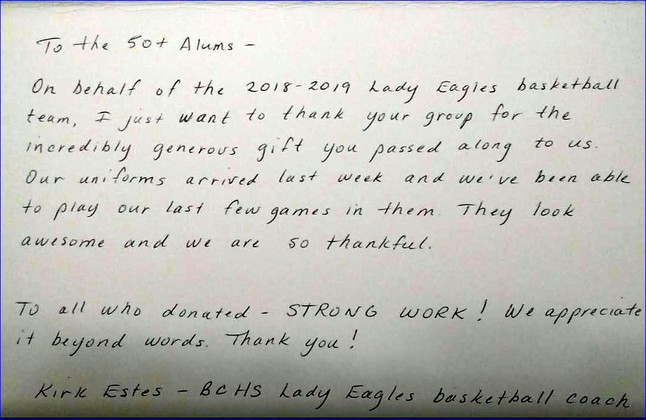 To the 50+ Alums -
On behalf of the 2018-2019 Lady Eagles basketball
team, I just want to thank your group for the
incredibly generous gift you passed along to us.
Our uniforms arrived last week and we've been able
to play our last few games in them. They look
awesome and we are so thankful.
To all who donated - STRONG WORK! We appreciate
it beyond words. Thank you!
Kirk Estes - BCHS Lady Eagles basketball coach